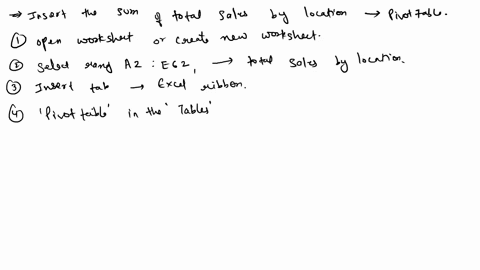 → Insert the sum of total sales by location → PivotTable.
① open worksheet or create new worksheet.
② Select rang A2 : E62, → total sales by location.
③ Insert tab → Excel ribbon.
④ 'Pivot table' in the 'Tables'